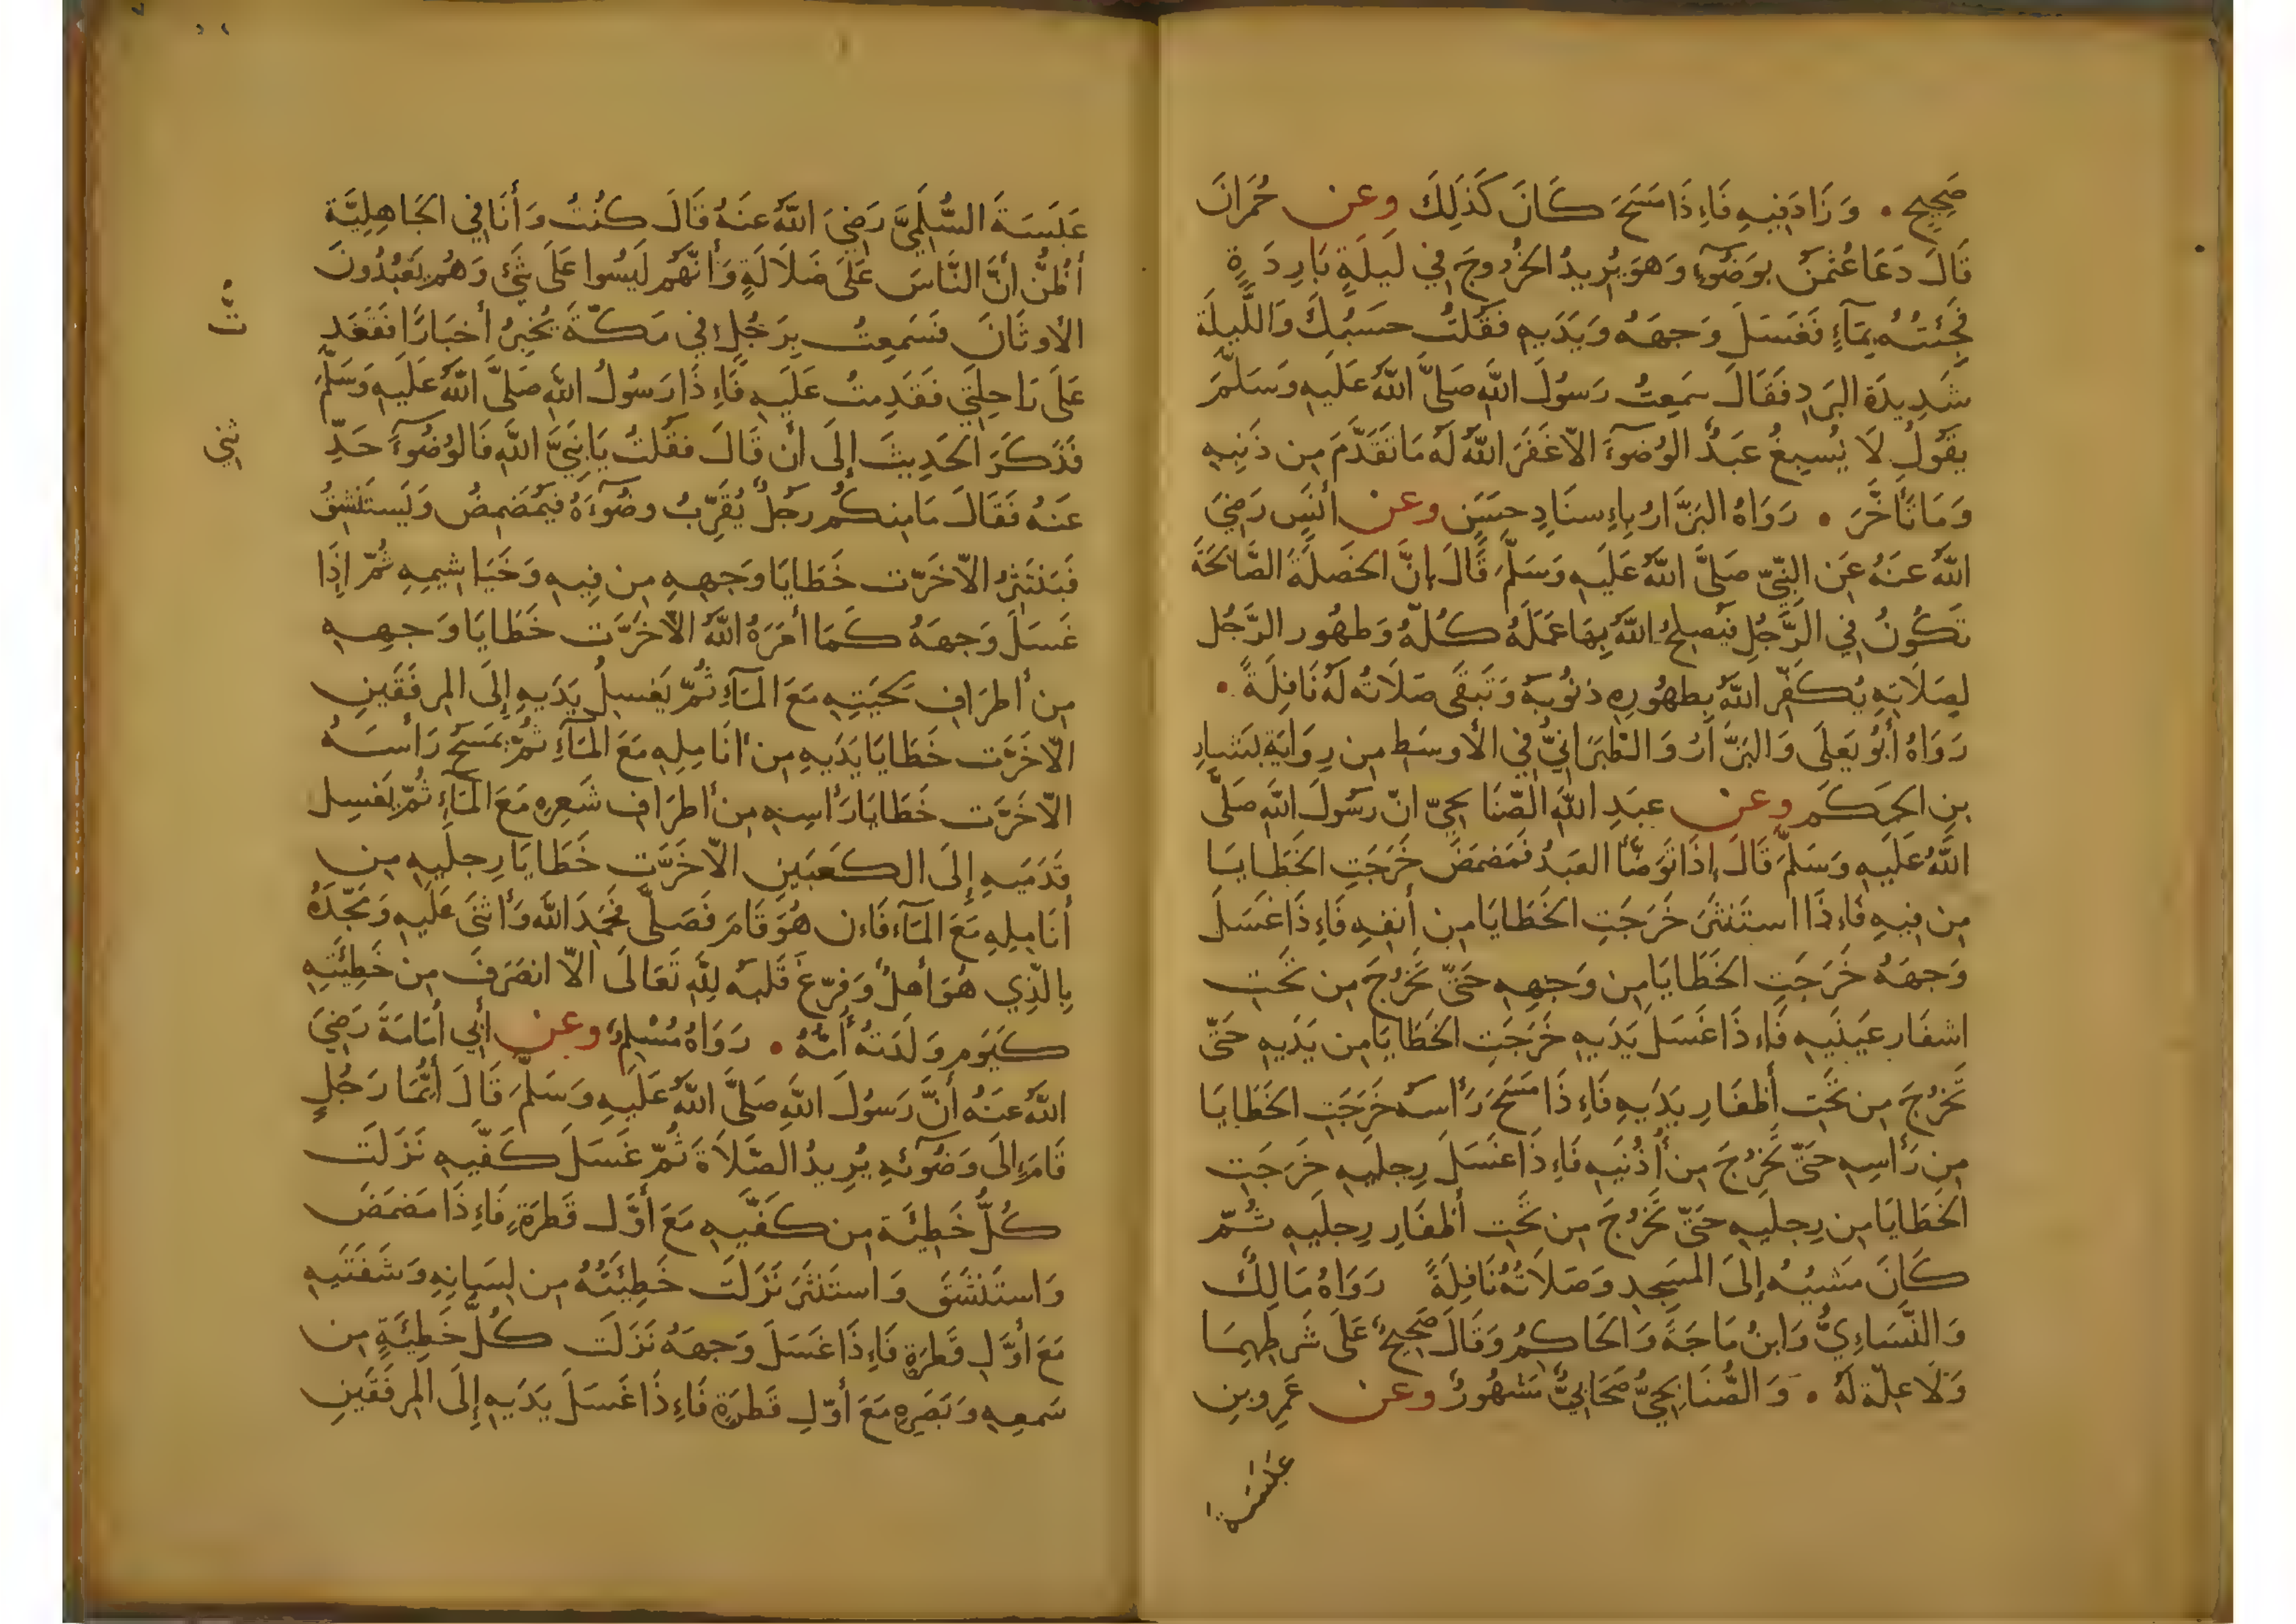 صَحِيحٍ • وَزَادَ فِيهِ فَاءِذَا مَسَحَ كَانَ كَذَلِكَ وعن حُمرَانَ
قَالَ دَعَا عُثمٰنُ بِوَضُوٓءٍ وَهوَ يُرِيدُ الخُرُوجَ فِي لَيلَةٍ بَارِدَةٍ
فَجِئتُهُ بِمَآءٍ فَغَسَلَ وَجهَهُ وَيَدَيهِ فَقُلتُ حسَبُكَ وَاللَّيلَة
شَدِيدَة البَردِ فَقَالَ سَمِعتُ رَسُولَ اللَّهِ صَلَّى اللَّهُ عَلَيهِ وَسَلَّمَ
يقُولُ لَا يُسبِغُ عَبدٌ الوُضُوٓءَ الاّ غَفَرَ اللهُ لَهُ مَا تَقَدَّمَ مِن ذَنبِهِ
وَمَا تَأَخَّرَ • رَوَاهُ البَزَّارُ بِاءِسنَادٍ حسَنٍ وعن أنَسٍ رَضِيَ
اللهُ عَنهُ عَنِ النَّبِيّ صَلَّى اللهُ عَلَيهِ وَسَلَّمَ قَالَ إنَّ الخَصلَةَ الصَّالحَةَ
تَكُونُ فِي الرَّجُلِ فيُصلِحُ اللهُ بِهَا عَمَلَهُ كُلَّهُ وَطهُور الرَّجُل
لِصَلَاتِهِ يُكَفِّر اللهُ بِطهُورِهِ ذنُوبَهُ وَتَبقَى صَلَاتُه لَهُ نَافِلَةً •
رَوَاهُ أبُو يَعلَى وَالبَزَّارُ وَالطَبَرَانِيُّ فِي الأوسَطِ مِن رِوَايَةِ بَشَّارِ
بنِ الحَكَم وعن عبدِ اللهِ الصّنَابحيّ انّ رَسُولَ اللهِ صَلَّى
اللهُ عَلَيهِ وَسَلَّمَ قَالَ إذَا تَوَضَّأ العَبدُ فَمَضمَضَ خَرَجَتِ الخَطَايَا
مِن فِيهِ فَاءِذَا استَنثَرَ خَرَجَتِ الخَطَايَا مِن أنفِهِ فَاءِذَا غَسَلَ
وَجهَهُ خَرَجَتِ الخَطَايَا مِن وَجهِهِ حَتَّى تَخرُجَ مِن تَحت
اشفَار عَينَيهِ فَاءِذَا غَسَلَ يَدَيهِ خَرَجَتِ الخَطَايَا مِن يَدَيهِ حَتّى
تَخرُجَ مِن تَحتِ أظفَارِ يَدَيهِ فَاءِذَا مَسَحَ رَأسَهُ خَرَجَتِ الخَطَايَا
مِن رَأسِهِ حَتَّى تَخرُجَ مِن أُذُنَيهِ فَاءِذَا غَسَلَ رِجلَيهِ خَرَجَتِ
الخَطَايَا مِن رِجلَيهِ حَتَّى تَخرُجَ مِن تَحتِ أظفَارِ رِجلَيهِ ثُمّ
كَانَ مَشيُهُ إلَى المَسجِدِ وَصَلَاتُهُ نَافِلَةً رَوَاهُ مَالِكٌ
وَالنَّسَاءِيُّ وَابنُ مَاجَةَ وَالحَاكِمُ وَقَالَ صَحِيحٌ عَلَى شَرطِهِمَا
وَلَا عِلّةَ لَهُ • وَالصُّنَابِحِيُّ صَحَابِيٌّ مَشهُورٌ وعن عَمرِو بنِ
عَبَسَة
عَبَسَةَ السُّلَمِيَّ رَضِيَ اللهُ عَنهُ قَالَ كُنتُ وَأنَا فِي الجَاهِلِيَّة
أظُنُّ أنَّ النَّاسَ عَلَى ضَلَالَةٍ وَأنَّهُم لَيسُوا عَلَى شَيْءٍ وَهُم يَعبُدُونَ
الأوثَانَ فَسَمِعتُ بِرَجُلٍ فِي مَكّةَ يُخبِرُ أخبَارًا فَقَعَد
عَلَى رَاحِلَتِي فَقَدِمتُ عَلَيهِ فَاءِذَا رَسُولُ اللهِ صَلَّى اللهُ عَلَيهِ وَسَلَّمَ
فَذَكَرَ الحَدِيثَ إلَى أن قَالَ فقُلتُ يَا نَبِيَّ اللهِ فَالوُضُوٓءَ حَدِّ
ثنِي
عَنهُ فَقَالَ مَا مِنكُم رجُلٌ يُقَرِّبُ وضُوٓءَهُ فيُمَضمِضُ وَيَستَنشِقُ
فَيَنتَثِرُ الاّ خَرّت خَطَايَا وَجهِهِ مِن فِيهِ وَخَيَاشِيمِهِ ثُمّ إذَا
غَسَلَ وَجهَهُ كَمَا أمَرَهُ اللهُ الاّ خَرَّت خَطَايَا وَجهِهِ
مِن أطرَافِ لحيَتِهِ مَعَ المَآءِ ثُمّ يَغسِلُ يَدَيهِ إلَى المِرفَقَينِ
الاّ خَرَّت خَطَايَا يَدَيهِ مِن أنَامِلِهِ مَعَ المَآءِ ثُمّ يمسَحُ رَأسَهُ
الاّ خَرَّت خَطَايَا رَأسِهِ مِن أطرَافِ شَعرِهِ مَعَ المَآءِ ثُمّ يَغسِل
قَدَمَيهِ إلَى الكَعبَينِ الاّ خَرَّت خَطَايَا رِجلَيهِ مِن
أنَامِلِهِ مَعَ المَآء فَاءن هُوَ قَامَ فَصَلَّى فَحَمِدَ اللهَ وَأثنَى عَلَيهِ وَمَجّدَهُ
بِالّذِي هُوَ أهلٌ وَفرّغَ قَلبَهُ لِلّهِ تَعَالَى الاّ انصَرَفَ مِن خَطِيئَتِهِ
كَيَومِ وَلَدَتهُ أُمّهُ • رَوَاهُ مُسْلِمٌ وعن أبِي أُمَامَةَ رَضِيَ
اللهُ عنَهُ أنَّ رَسُولَ اللهِ صَلَّى اللهُ عَلَيهِ وَسَلَّمَ قَالَ أيُّمَا رَجُلٍ
قَامَ إلَى وَضُوٓئِهِ يُرِيدُ الصَّلَاةَ ثُمّ غَسَلَ كَفَّيهِ نَزَلَت
كُلُّ خَطِيئَة مِن كَفَّيهِ مَعَ أوَّل قَطرَةٍ فَاءِذَا مَضمَضَ
وَاستَنشَقَ وَاستَنثَرَ نَزَلَت خَطِيئَتُهُ مِن لِسَانِهِ وَشَفَتَيهِ
مَعَ أوَّلِ قَطرَةٍ فَاءِذَا غَسَلَ وَجهَهُ نَزَلَت كُلُّ خَطِيئَةٍ مِن
سَمعِهِ وَبَصَرِهِ مَعَ أوّلِ قَطرَةٍ فَاءِذَا غَسَلَ يَدَيهِ إلَى المِرفَقَينِ